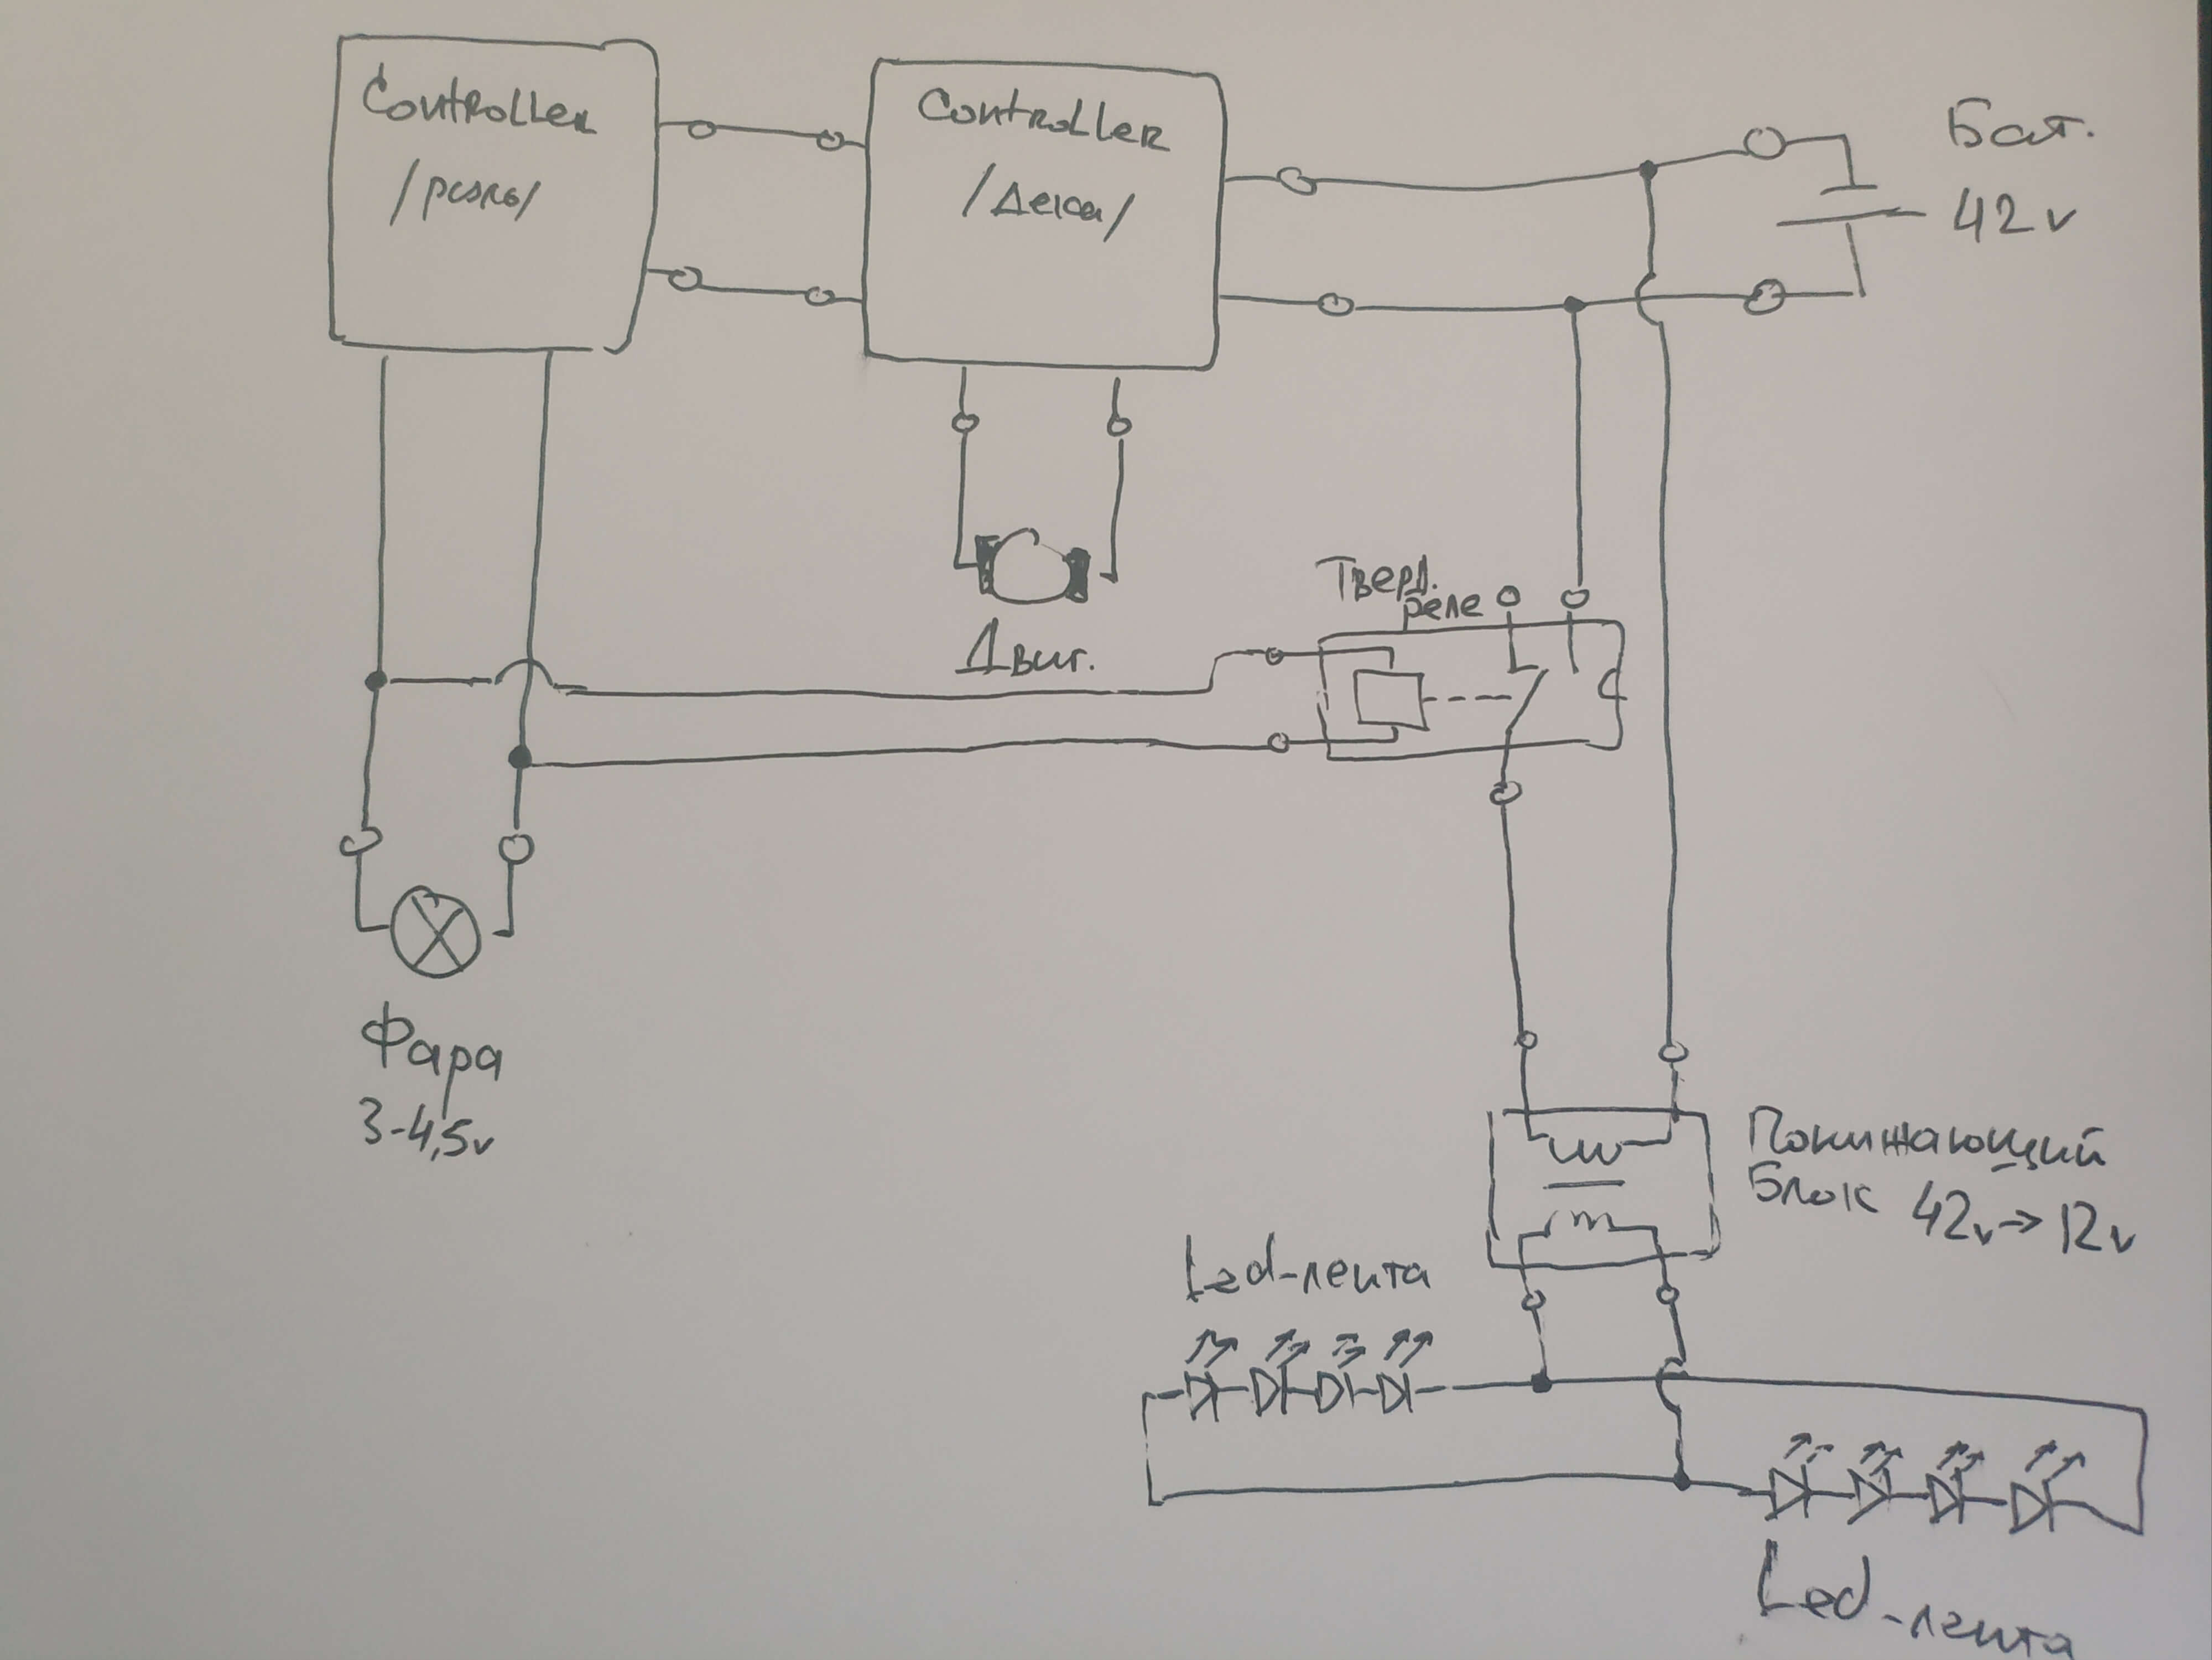 Controller
Controller
/Дека/
Бат.
42v
Тверд.
реле
Двиг.
Фара
3-4,5v
Понижающий
Блок 42v→12v
Led-лента
Led-лента